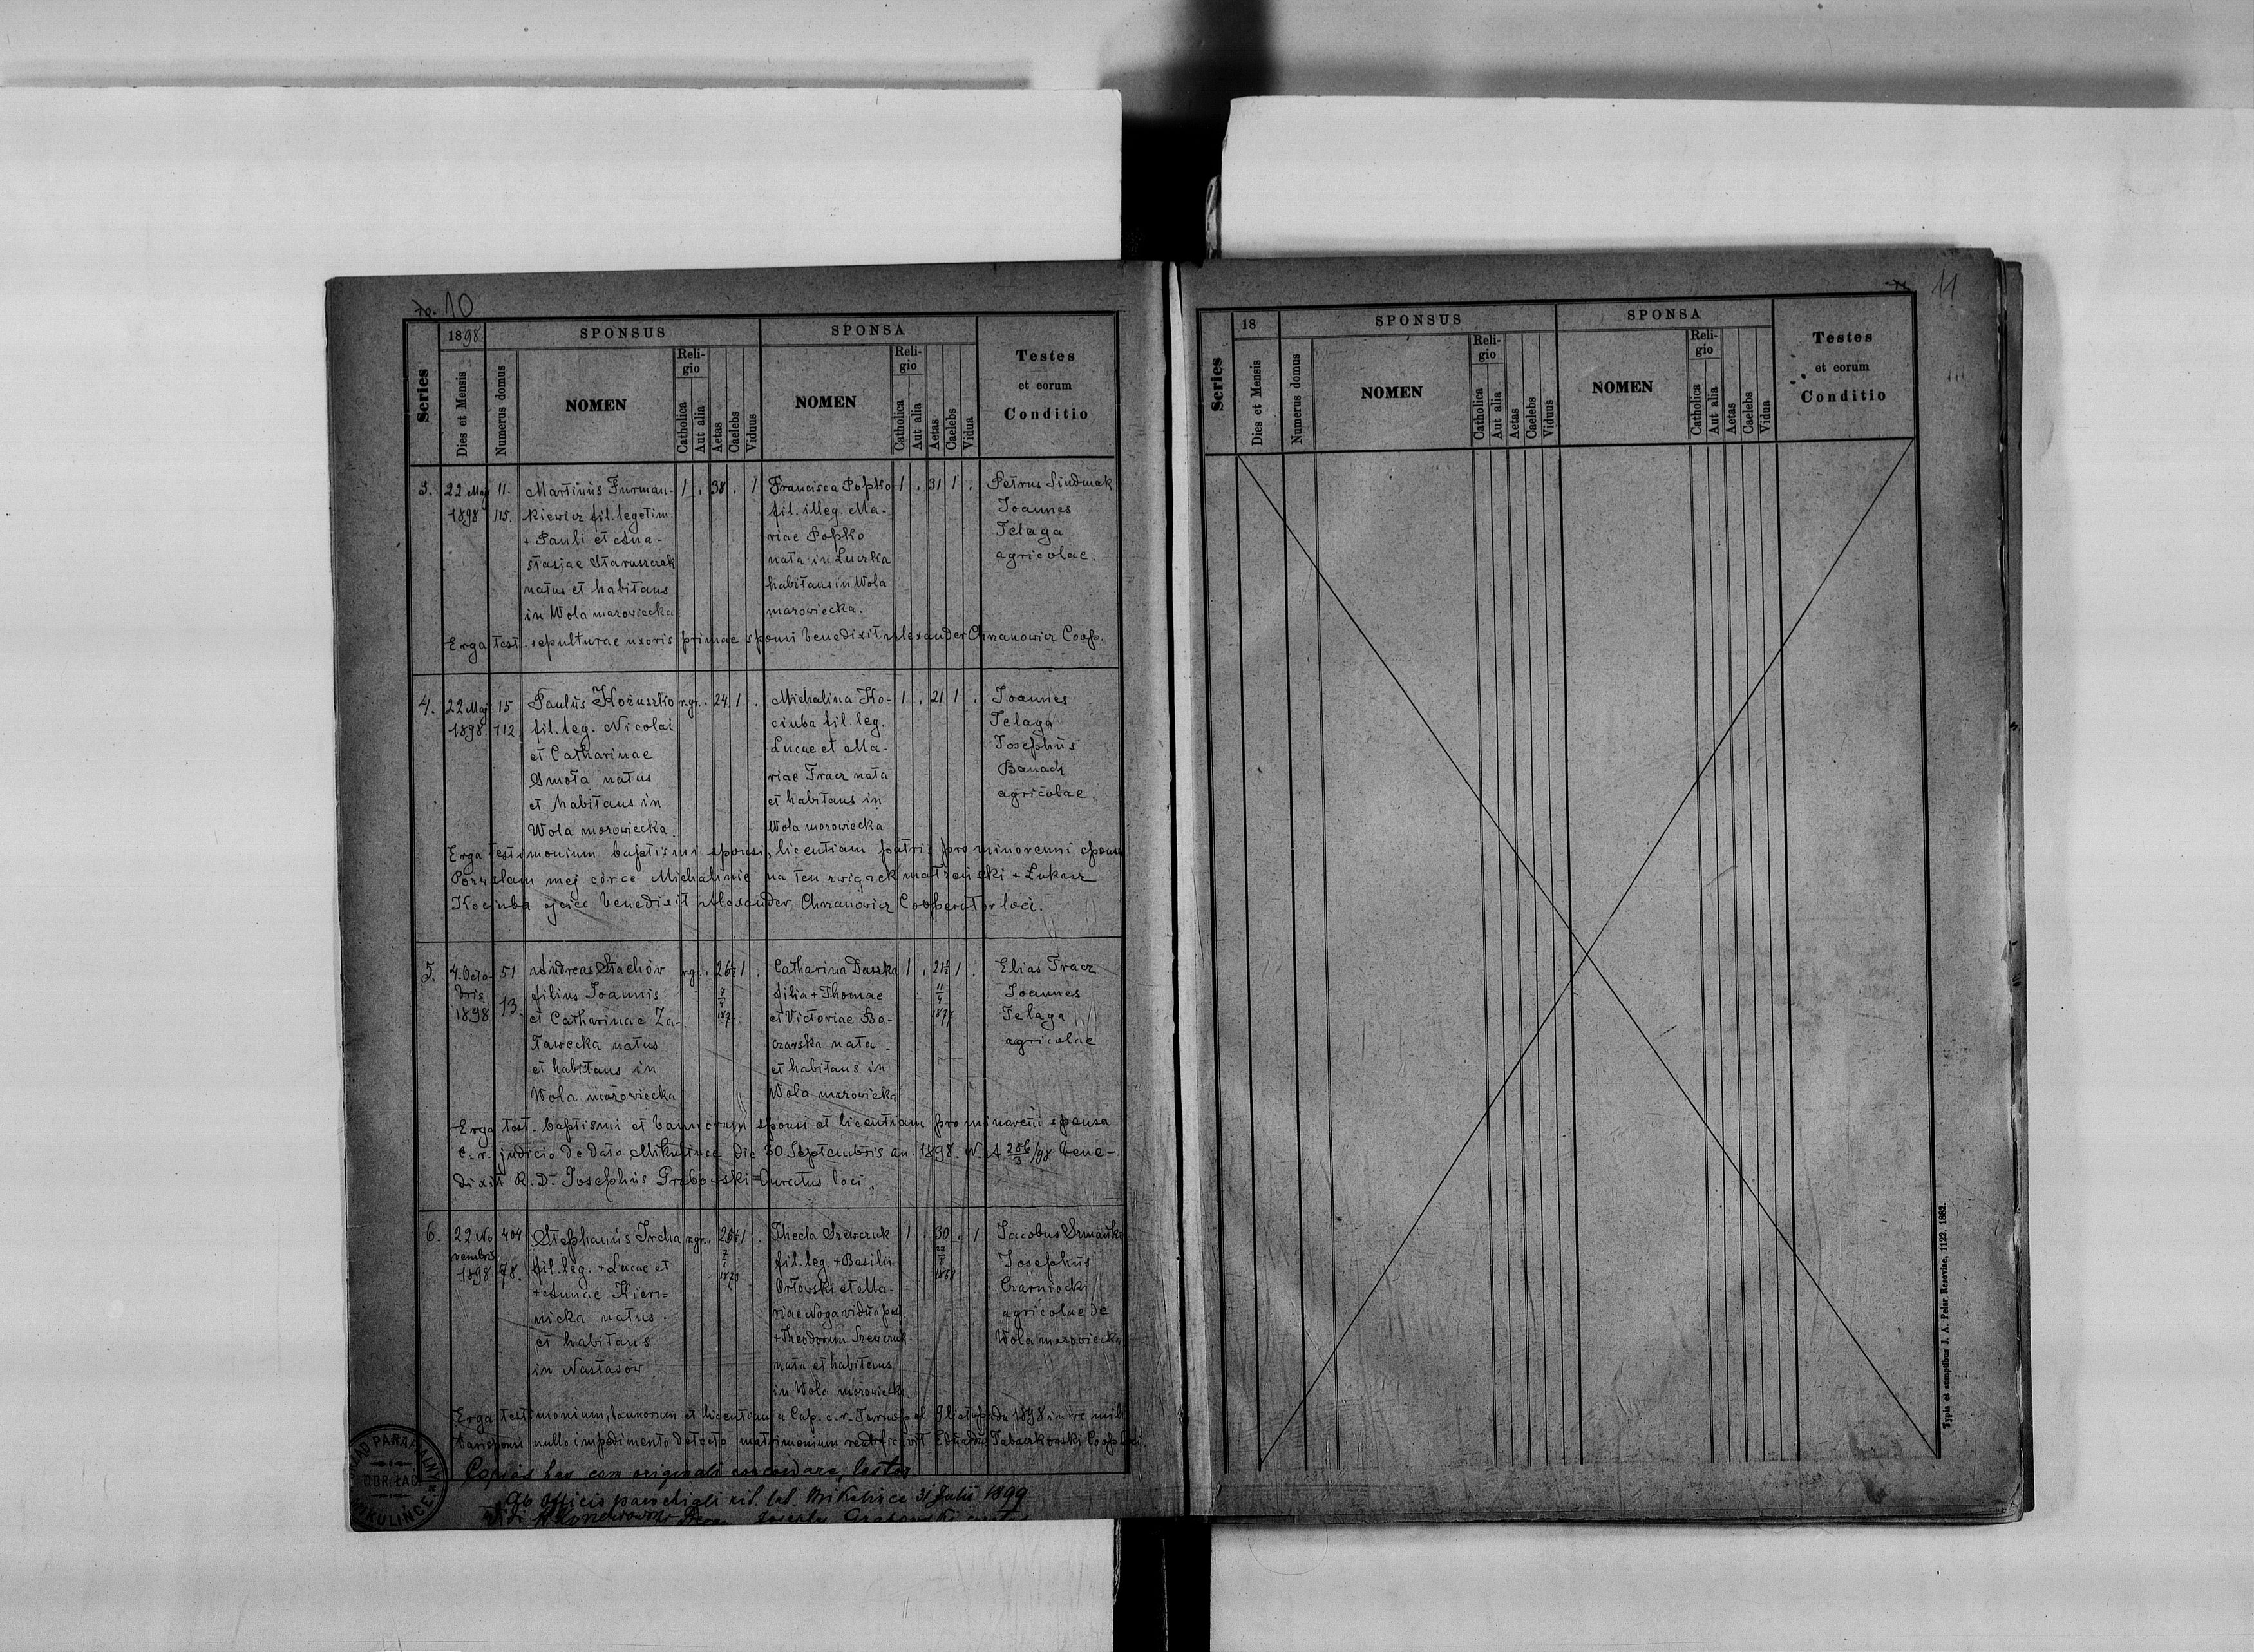 10
1898
SPONSUS
SPONSA
Testes
et eorum
Conditio
Series
Dies et Mensis
Numerus domus
NOMEN
Reli-
gio
Catholica
Aut alia
Aetas
Caelebs
Viduus
NOMEN
Reli-
gio
Catholica
Aut alia
Aetas
Caelebs
Vidua
3.
22 Maj
1898
11.
115.
Martinus Furman-
kiewicz fil. legetim.
+ Pauli et Ana-
stasiae Staruszczak
natus et habitans
in Wola mazowiecka
1 . 38 . 1
Francisca Popko
fil. illeg. Ma-
riae Popko
nata in Łuczka
habitans in Wola
mazowiecka.
1 . 31 1 .
Petrus
Joannes
Telaga
agricolae.
Erga test. sepulturae uxoris primae sponsi benedixit Alexander Chrzanowicz Coop.
4.
22 Maj
1898.
15
112
Paulus Kożuszko
fil. leg. Nicolai
et Catharinae
Smota natus
et habitans in
Wola mazowiecka.
r.gr. . 24 1 .
Michalina Ko-
ciuba fil. leg.
Lucae et Ma-
riae Tracz nata
et habitans in
Wola mazowiecka
1 . 21 1 .
Joannes
Telaga
Josephus
Banach
agricolae.
Erga testimonium baptismi sponsi, licentiam patris pro minorenni sponsa
Pozwalam mej córce Michalinie na ten związek małżeński + Łukasz
Kociuba ojciec benedixit Alexander Chrzanowicz Cooperator loci.
5.
4. Octo-
bris
1898
51
13.
Andreas Stachów
filius Joannis
et Catharinae Za-
tawecka natus
et habitans in
Wola mazowiecka
r.gr. .
Catharina Duszka
filia + Thomae
et Victoriae Bo-
czarska nata
et habitans in
Wola mazowiecka
1 .
Elias Tracz
Joannes
Telaga
agricolae
Erga test. baptismi et bannorum sponsi et licentiam pro minorenni sponsa
c. r. judicio de dato Mikulince die 30 Septembris an. 1898. N. A 286/3/98 bene-
dixit R. D. Josephus Grabowski Curatus loci.
6.
22 No
vembris
1898
404
78.
Stephanus Ircha
fil. leg. + Lucae et
+ Annae Kier-
nicka natus
et habitans
in Nastasów
r.gr. .
Thecla Szewczuk
fil. leg. + Basilii
Orłowski et Ma-
riae Noga vidua post
+ Theodorum Szewczuk
nata et habitans
in Wola mazowiecka
1 . 30 . 1
Jacobus
Josephus
Czarniecki
agricolae de
Wola mazowiecka
Erga testimonium bannorum et licentiam a Cap. c. r. Tarnopol 9 listopada 1898 in re mili
tari sponsi nullo impedimento detecto matrimonium Coop. loci.
Copias has cum originali concordare testor
Ab Officio parochiali rit. lat. Mikulince 31 Julii 1899
URZĄD PARAFIALNY
OBR. ŁAC
MIKULIŃCE
11
18
SPONSUS
SPONSA
Testes
et eorum
Conditio
Series
Dies et Mensis
Numerus domus
NOMEN
Reli-
gio
Catholica
Aut alia
Aetas
Caelebs
Viduus
NOMEN
Reli-
gio
Catholica
Aut alia
Aetas
Caelebs
Vidua
Typis et sumptibus J. A. Pelar Resoviae, 1122. 1882.